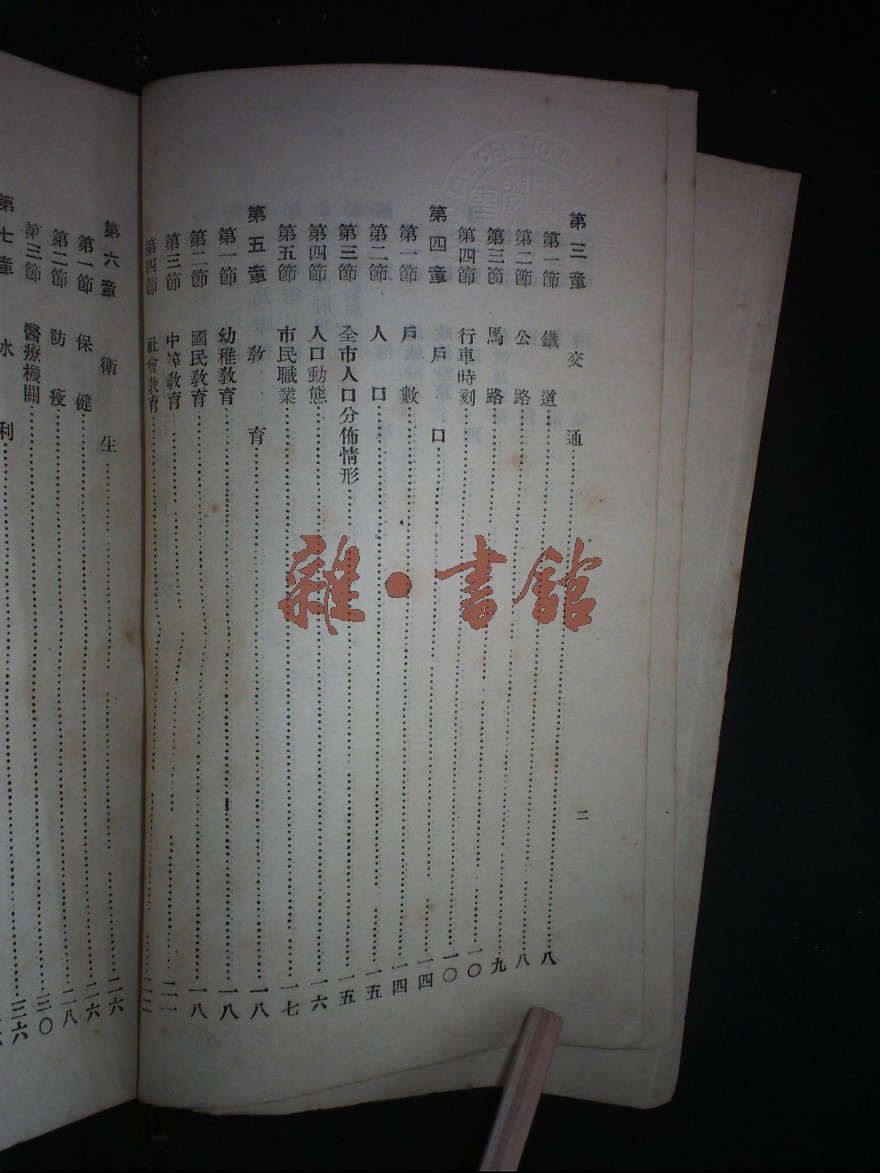 二
第三章 交通 八
第一節 鐵道 八
第二節 公路 九
第三節 馬路 一〇
第四節 行車時刻 一〇
第四章 戶口 一四
第一節 戶數 一四
第二節 人口 一五
第三節 全市人口分佈情形 一五
第四節 人口動態 一六
第五節 市民職業 一七
第五章 教育 一八
第一節 幼稚教育 一八
第二節 國民教育 一八
第三節 中等教育 二一
第四節 社會教育 二二
第六章 衛生 二六
第一節 保健 二六
第二節 防疫 二八
第三節 醫療機關 三〇
第七章 水利 三六
雜·書館
CENTRAL